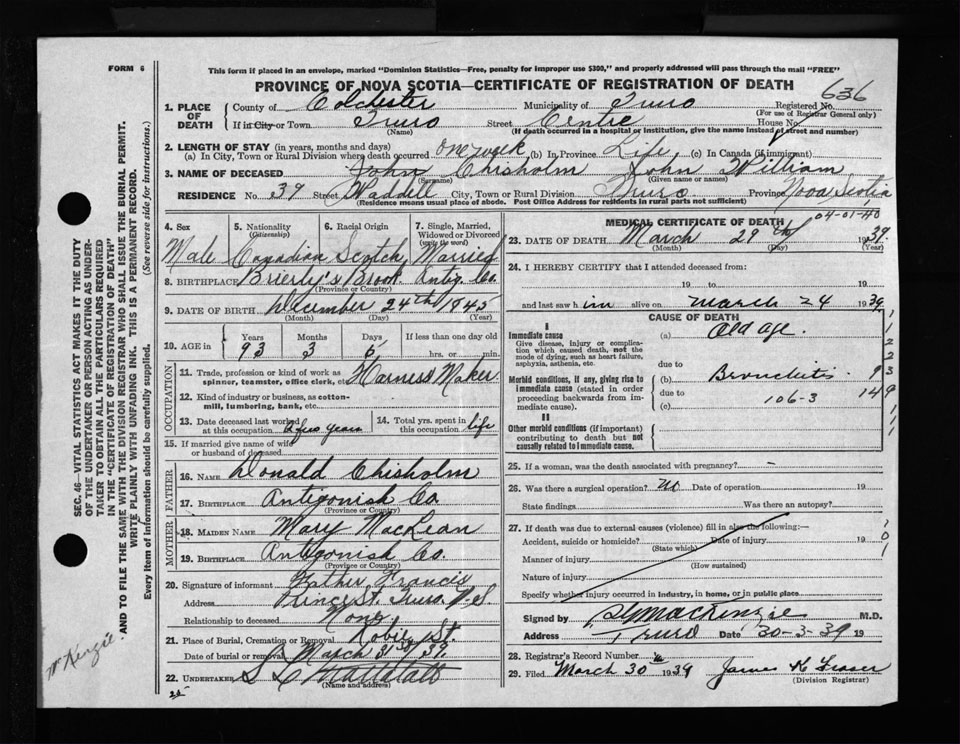 FORM 6
This form if placed in an envelope, marked "Dominion Statistics—Free, penalty for improper use $300," and properly addressed will pass through the mail "FREE"
PROVINCE OF NOVA SCOTIA—CERTIFICATE OF REGISTRATION OF DEATH
636
1. PLACE OF DEATH
County of Colchester Municipality of Truro Registered No.
(For use of Registrar General only)
If in City or Town Truro Street Centre House No.
(Name) (If death occurred in a hospital or institution, give the name instead of street and number)
2. LENGTH OF STAY (in years, months and days)
(a) In City, Town or Rural Division where death occurred one week (b) In Province Life (c) In Canada (if immigrant)
3. NAME OF DECEASED John Chisholm John William
(Surname) (Given name or names)
RESIDENCE No. 39 Street Waddell City, Town or Rural Division Truro Province Nova Scotia
(Residence means usual place of abode. Post Office Address for residents in rural parts not sufficient)
4. Sex 5. Nationality (Citizenship) 6. Racial Origin 7. Single, Married, Widowed or Divorced (write the word)
Male Canadian Scotch Married
8. BIRTHPLACE Brierly's Brook Antig. Co.
(Province or Country)
9. DATE OF BIRTH December 24th 1845
(Month) (Day) (Year)
10. AGE in Years Months Days If less than one day old
93 3 6 hrs. or min.
OCCUPATION
11. Trade, profession or kind of work as spinner, teamster, office clerk, etc. Harness Maker
12. Kind of industry or business, as cotton-mill, lumbering, bank, etc.
13. Date deceased last worked at this occupation a few years 14. Total yrs. spent in this occupation life
15. If married give name of wife or husband of deceased
FATHER
16. NAME Donald Chisholm
17. BIRTHPLACE Antigonish Co
(Province or Country)
MOTHER
18. MAIDEN NAME Mary MacLean
19. BIRTHPLACE Antigonish Co.
(Province or Country)
20. Signature of informant Father Francis
Address Prince St. Truro N.S
Relationship to deceased None
21. Place of Burial, Cremation or Removal Robie St.
Date of burial or removal March 31st 39
22. UNDERTAKER
(Name and address)
MEDICAL CERTIFICATE OF DEATH
04-01-40
23. DATE OF DEATH March 29th 1939
(Month) (Day) (Year)
24. I HEREBY CERTIFY that I attended deceased from:
19 to 19
and last saw him alive on March 24 1939
CAUSE OF DEATH
I
Immediate cause
Give disease, injury or complication which caused death, not the mode of dying, such as heart failure, asphyxia, asthenia, etc.
(a) Old age.
due to
Morbid conditions, if any, giving rise to immediate cause (stated in order proceeding backwards from immediate cause).
(b) Bronchitis
due to
(c) 106-3
II
Other morbid conditions (if important) contributing to death but not causally related to immediate cause.
25. If a woman, was the death associated with pregnancy? -
26. Was there a surgical operation? no Date of operation 19
State findings Was there an autopsy?
27. If death was due to external causes (violence) fill in also the following:—
Accident, suicide or homicide? Date of injury 19
(State which)
Manner of injury
(How sustained)
Nature of injury
Specify whether injury occurred in industry, in home, or in public place
Signed by MacKenzie M.D.
Address Truro Date 30-3-39 19
28. Registrar's Record Number
29. Filed March 30 1939 James K Fraser
(Division Registrar)
SEC. 46—VITAL STATISTICS ACT MAKES IT THE DUTY OF THE UNDERTAKER OR PERSON ACTING AS UNDERTAKER TO OBTAIN ALL THE PARTICULARS REQUIRED IN THE "CERTIFICATE OF REGISTRATION OF DEATH" AND TO FILE THE SAME WITH THE DIVISION REGISTRAR WHO SHALL ISSUE THE BURIAL PERMIT.
WRITE PLAINLY WITH UNFADING INK. THIS IS A PERMANENT RECORD.
Every item of information should be carefully supplied. (See reverse side for instructions.)